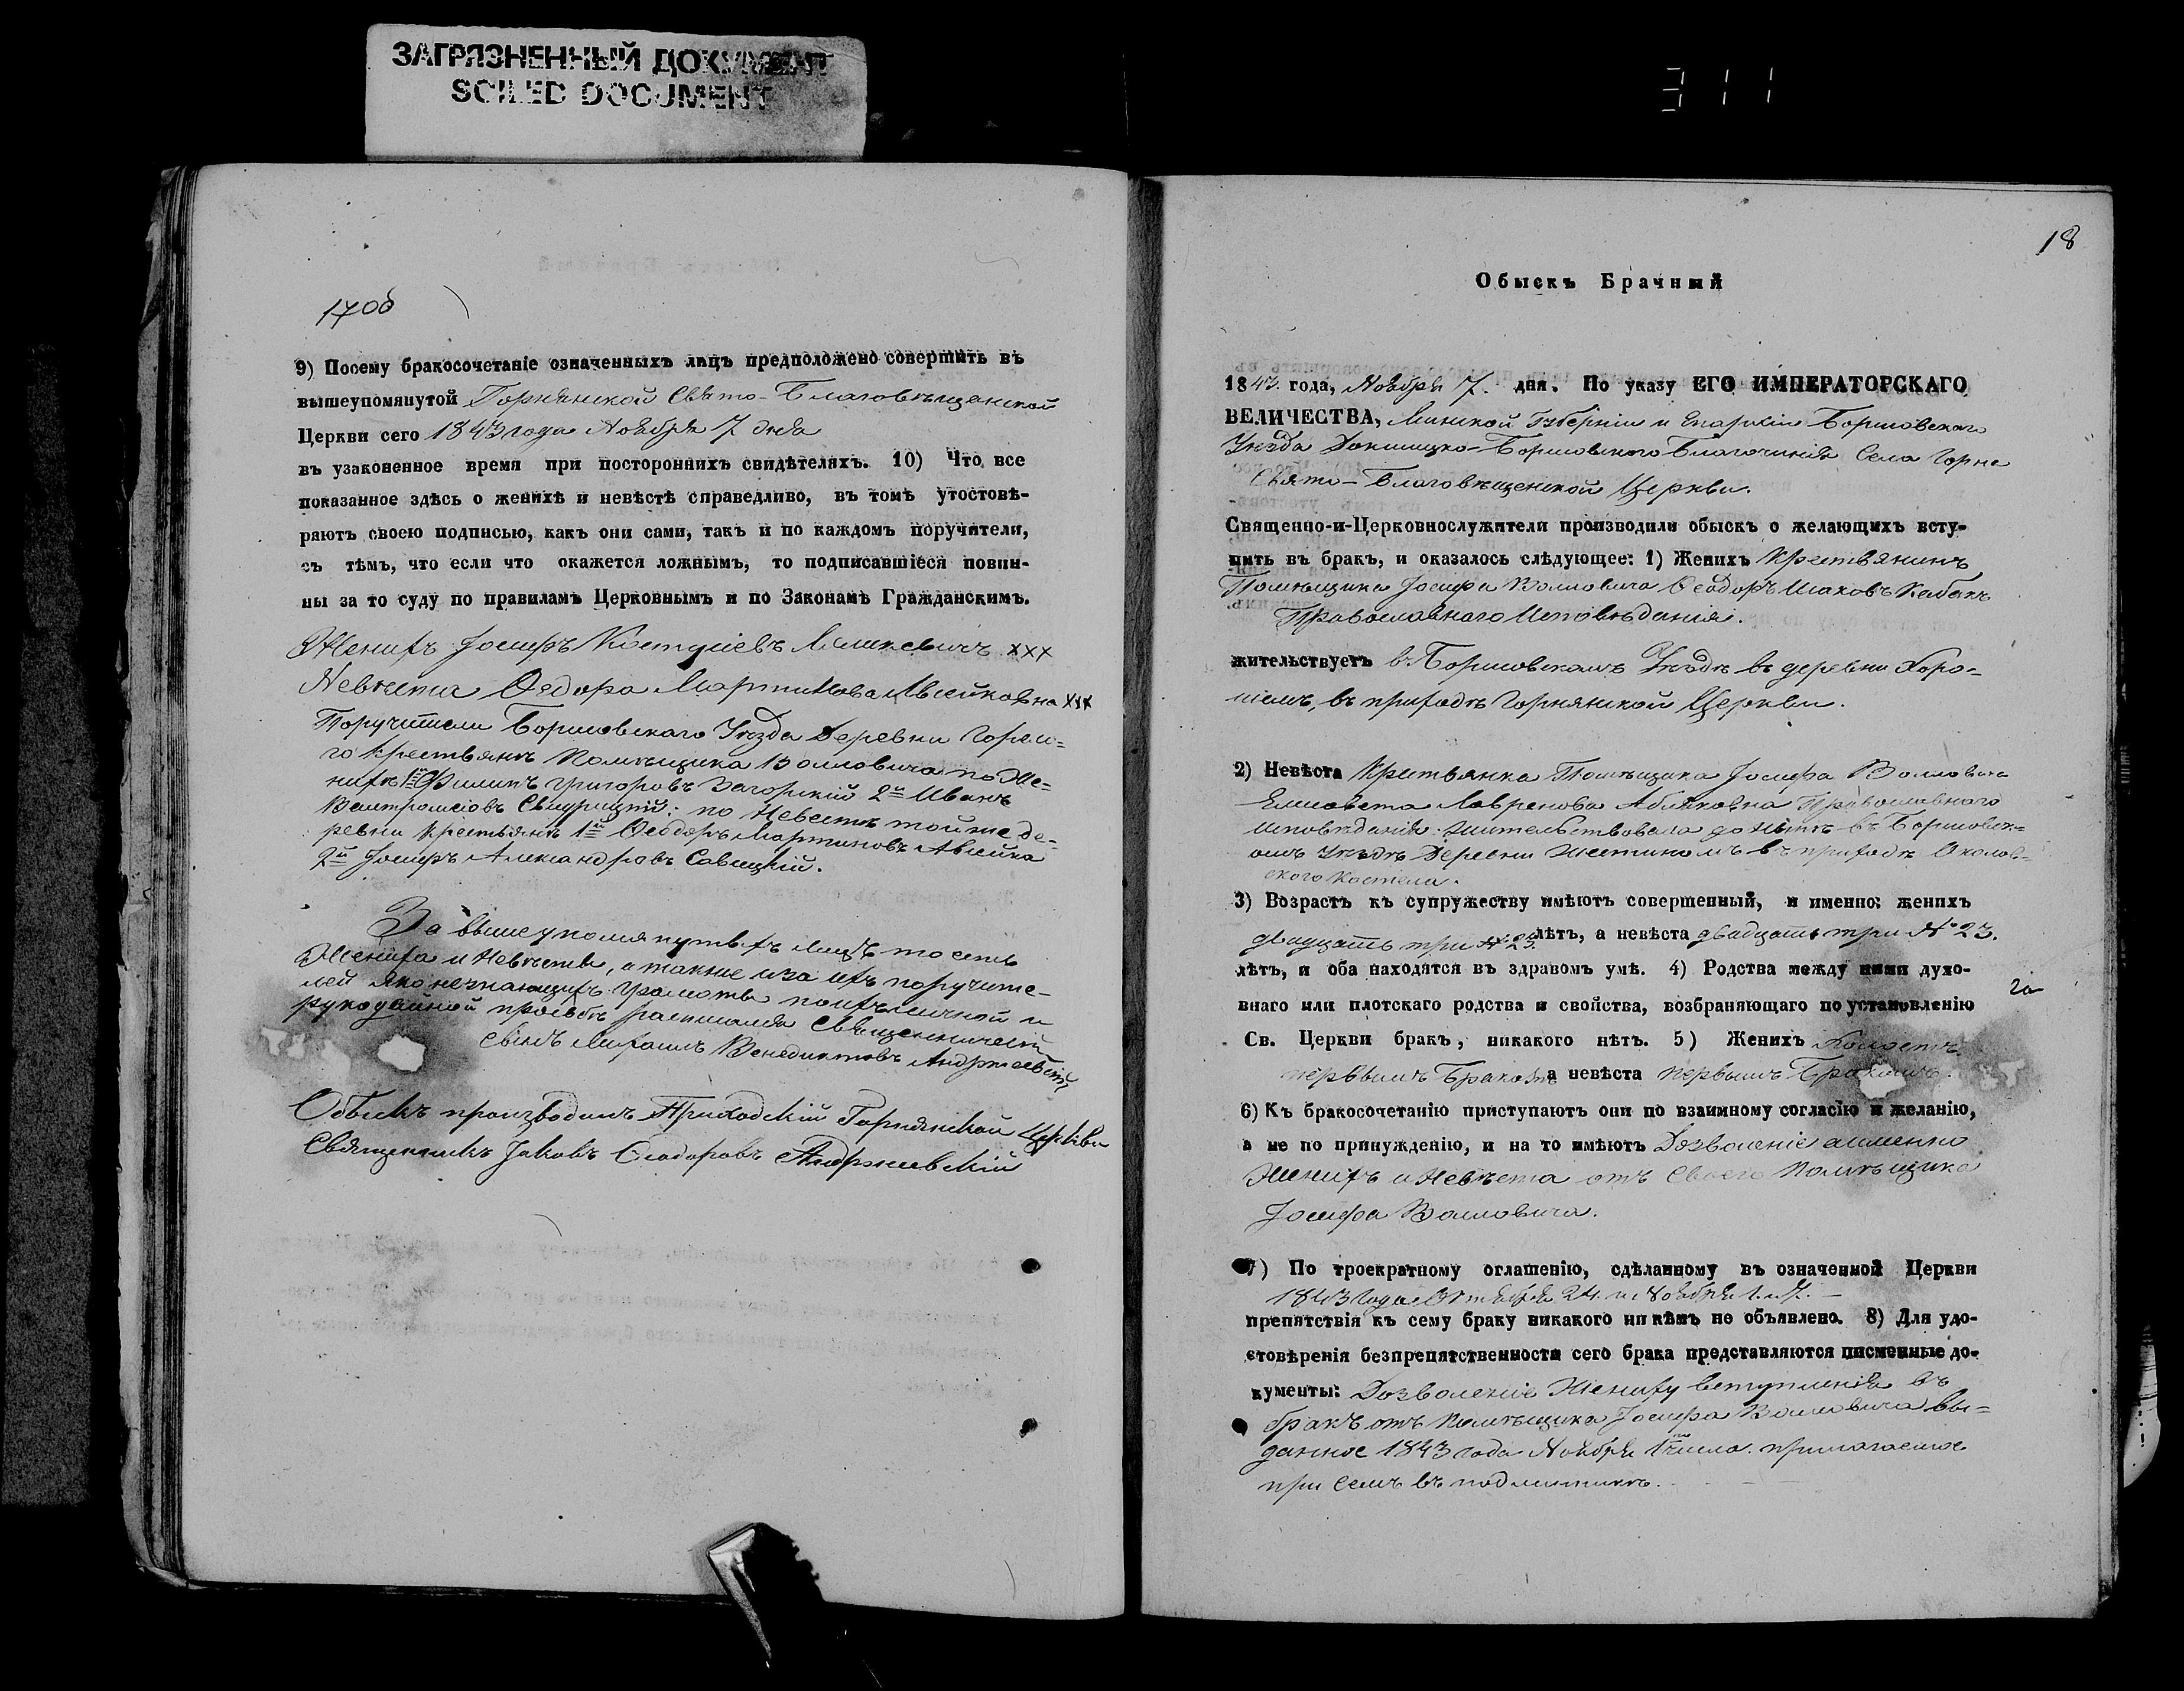 ЗАГРЯЗНЕННЫЙ ДОКУМЕНТ
SOILED DOCUMENT
311
17об
9) Посему бракосочетаніе означенныхъ лицъ предположено совершить въ
вышеупомянутой Горнянской Свято-Благовѣщенской
Церкви сего 1843 года Ноября 7 дня
въ узаконенное время при постороннихъ свидѣтеляхъ. 10) Что все
показанное здѣсь о женихѣ и невѣстѣ справедливо, въ томъ утостовѣ-
ряютъ своею подписью, какъ они сами, такъ и по каждомъ поручители,
съ тѣмъ, что если что окажется ложнымъ, то подписавшіеся повин-
ны за то суду по правиламъ Церковнымъ и по Законамъ Гражданскимъ.
Женихъ Іосифъ xxx
Невѣста Ѳедора Мартинова Авсейковна xxx
Поручители Борисовскаго Уѣзда Деревни
го крестьянъ Помѣщика Волловича по Же-
нихѣ 1й Филипъ Григоровъ Загорскій 2й Иванъ
по Невестѣ той же де-
ревни крестьянъ 1й Ѳеодоръ Мартиновъ Авсейка
2й Іосифъ Александровъ Савицкій.
За вышеупомянутыхъ лицъ то есть
Жениха и Невѣсты, а также и за ихъ поручите-
лей яко незнающихъ грамоты по ихъ личной и
рукодайной прозьбѣ расписался Священническій
сынъ Михаилъ Венедиктовъ Андржеевскій
Обыскъ производилъ Приходскій Горнянской Церкви
Священникъ Іаковъ Ѳеодоровъ Андржеевскій
18
Обыскъ Брачный
1843 года, Ноября 7. дня. По указу ЕГО ИМПЕРАТОРСКАГО
ВЕЛИЧЕСТВА, Минской Губерніи и Епархіи Борисовскаго
Уѣзда Докшицко-Борисовскаго Благочинія Села Горне
Свято-Благовѣщенской Церкви.
Священно-и-Церковнослужители производили обыскъ о желающихъ всту-
пить въ бракъ, и оказалось слѣдующее: 1) Женихъ Крестьянинъ
Помѣщика Іосифа Волловича Ѳеодоръ Исаковъ Кабакъ
Православнаго Исповѣданія.
жительствуетъ въ Борисовскомъ Уѣздѣ въ деревни
въ приходѣ Горнянской Церкви.
2) Невѣста Крестьянка Помѣщика Іосифа Волловича
Елисавета Лавренова Православнаго
исповѣданія жительствовала до нынѣ въ Борисовск-
омъ Уѣздѣ Деревни въ приходѣ Околов-
скаго Костела.
3) Возрастъ къ супружеству имѣютъ совершенный, и именно: женихъ
двадцать три №23. лѣтъ, а невѣста двадцать три №23.
лѣтъ, и оба находятся въ здравомъ умѣ. 4) Родства между ними духо-
внаго или плотскаго родства и свойства, возбраняющаго по установленію
Св. Церкви бракъ, никакого нѣтъ. 5) Женихъ Холостъ
первымъ Бракомъ а невѣста первымъ Бракомъ.
6) Къ бракосочетанію приступаютъ они по взаимному согласію и желанію,
а не по принужденію, и на то имѣютъ Дозволеніе а именно
Женихъ и Невѣста отъ Своего Помѣщика
Іосифа Волловича.
7) По троекратному оглашенію, сдѣланному въ означенной Церкви
1843 года Октября 24. и Ноября 1. и 7. —
препятствія къ сему браку никакого ни кѣмъ не объявлено. 8) Для удо-
стовѣренія безпрепятственности сего брака представляются писменные до-
кументы: Дозволеніе Жениху вступленія въ
бракъ отъ Помѣщика Іосифа Волловича вы-
данное 1843 года Ноября 1го числа. прилагаемое
при семъ въ подлинникѣ.